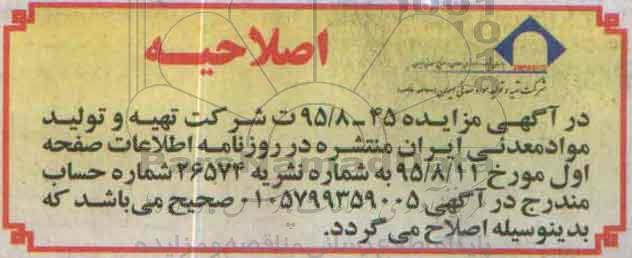 اصلاحیه
شرکت تهیه و تولید مواد معدنی ایران
در آگهی مزایده ۴۵-۹۵/۸ ت شرکت تهیه و تولید
موادمعدنی ایران منتشره در روزنامه اطلاعات صفحه
اول مورخ ۹۵/۸/۱۱ به شماره نشریه ۲۶۵۷۴ شماره حساب
مندرج در آگهی ۰۱۰۵۷۹۹۳۵۹۰۰۵ صحیح می‌باشد که
بدینوسیله اصلاح می گردد.